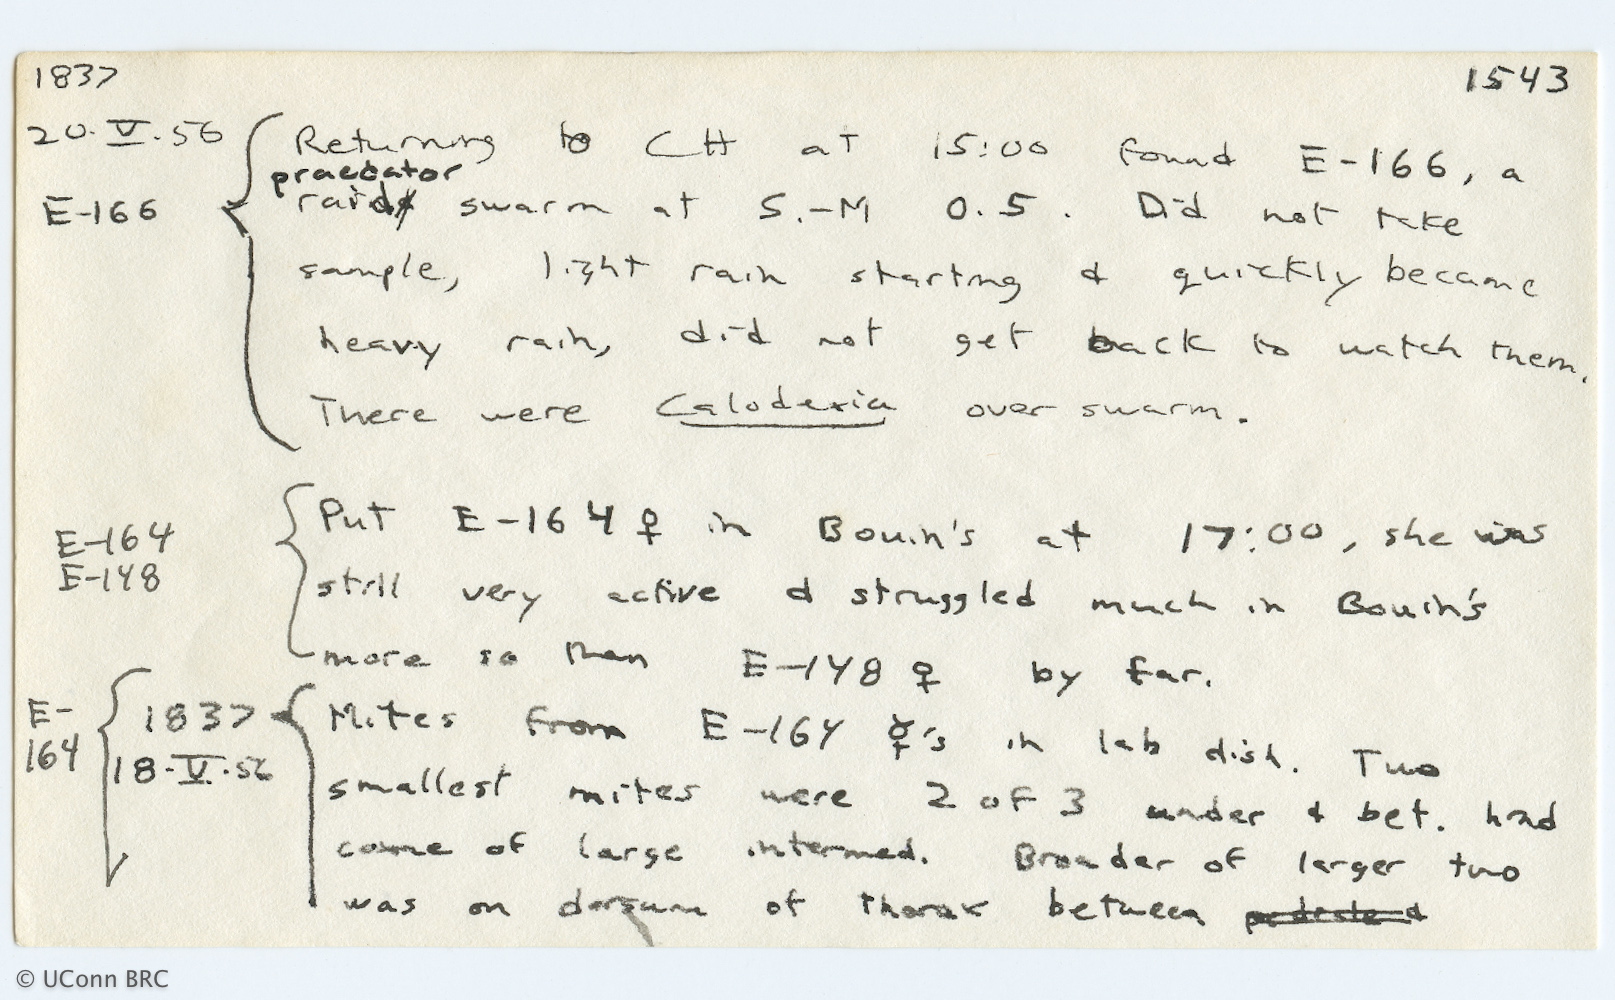 1837
1543
20.V.56
E-166
Returning to CH at 15:00 found E-166, a
praedator
raid swarm at S.-M 0.5. Did not take
sample, light rain starting & quickly became
heavy rain, did not get back to watch them.
There were Calodexia over swarm.
E-164
E-148
Put E-164 ♀ in Bouin's at 17:00, she was
still very active & struggled much in Bouin's
more so than E-148 ♀ by far.
E-
164
1837
18.V.56
Mites from E-164 ☿'s in lab dish. Two
smallest mites were 2 of 3 under & bet. hind
coxae of large intermed. Broader of larger two
was on dorsum of thorax between
© UConn BRC